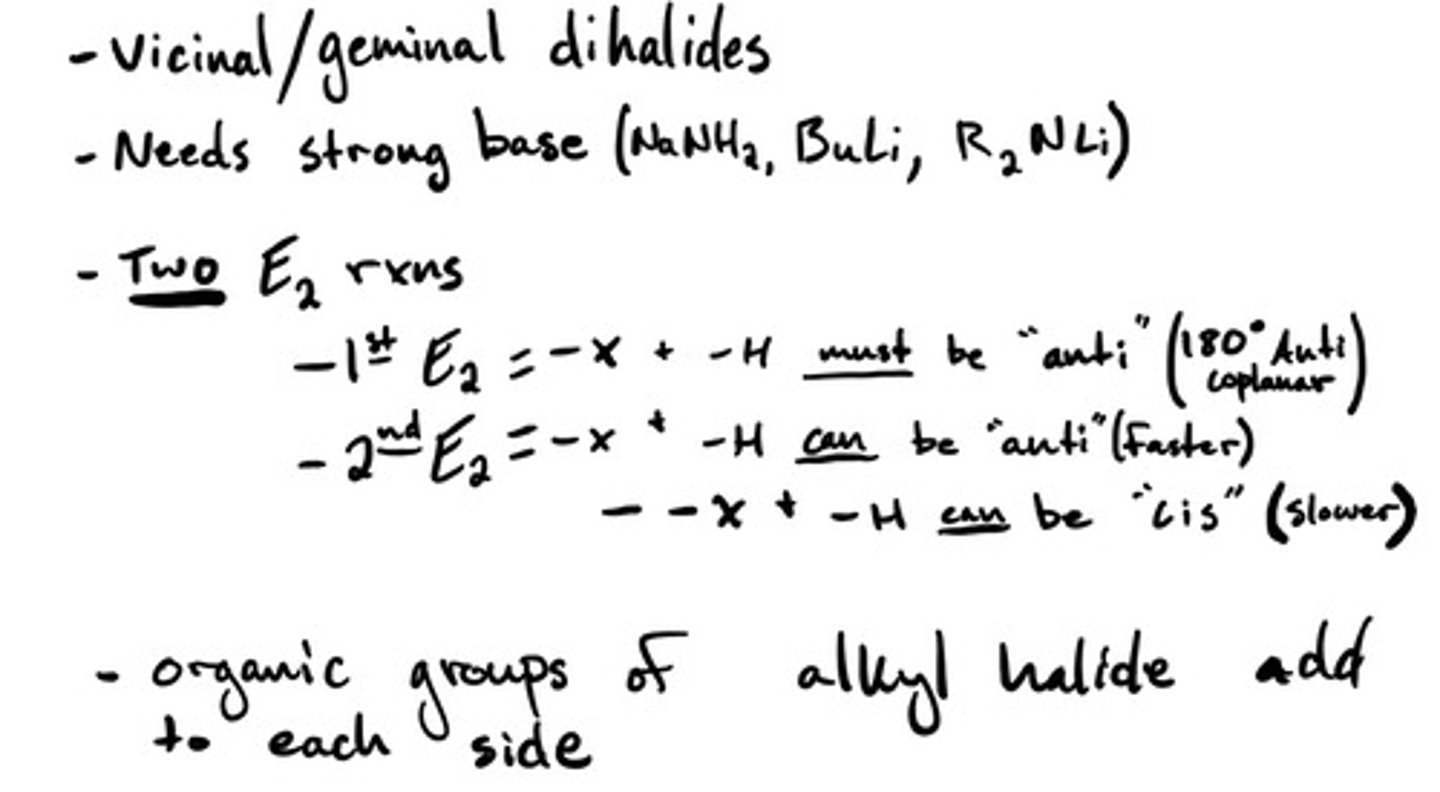 - Vicinal/geminal dihalides
- Needs strong base (NaNH₂, BuLi, R₂NLi)
- Two E₂ rxns
- 1st E₂ = -X + -H must be "anti" (180° Anti coplanar)
- 2nd E₂ = -X + -H can be "anti" (Faster)
- -X + -H can be "cis" (slower)
- organic groups of alkyl halide add
to each side